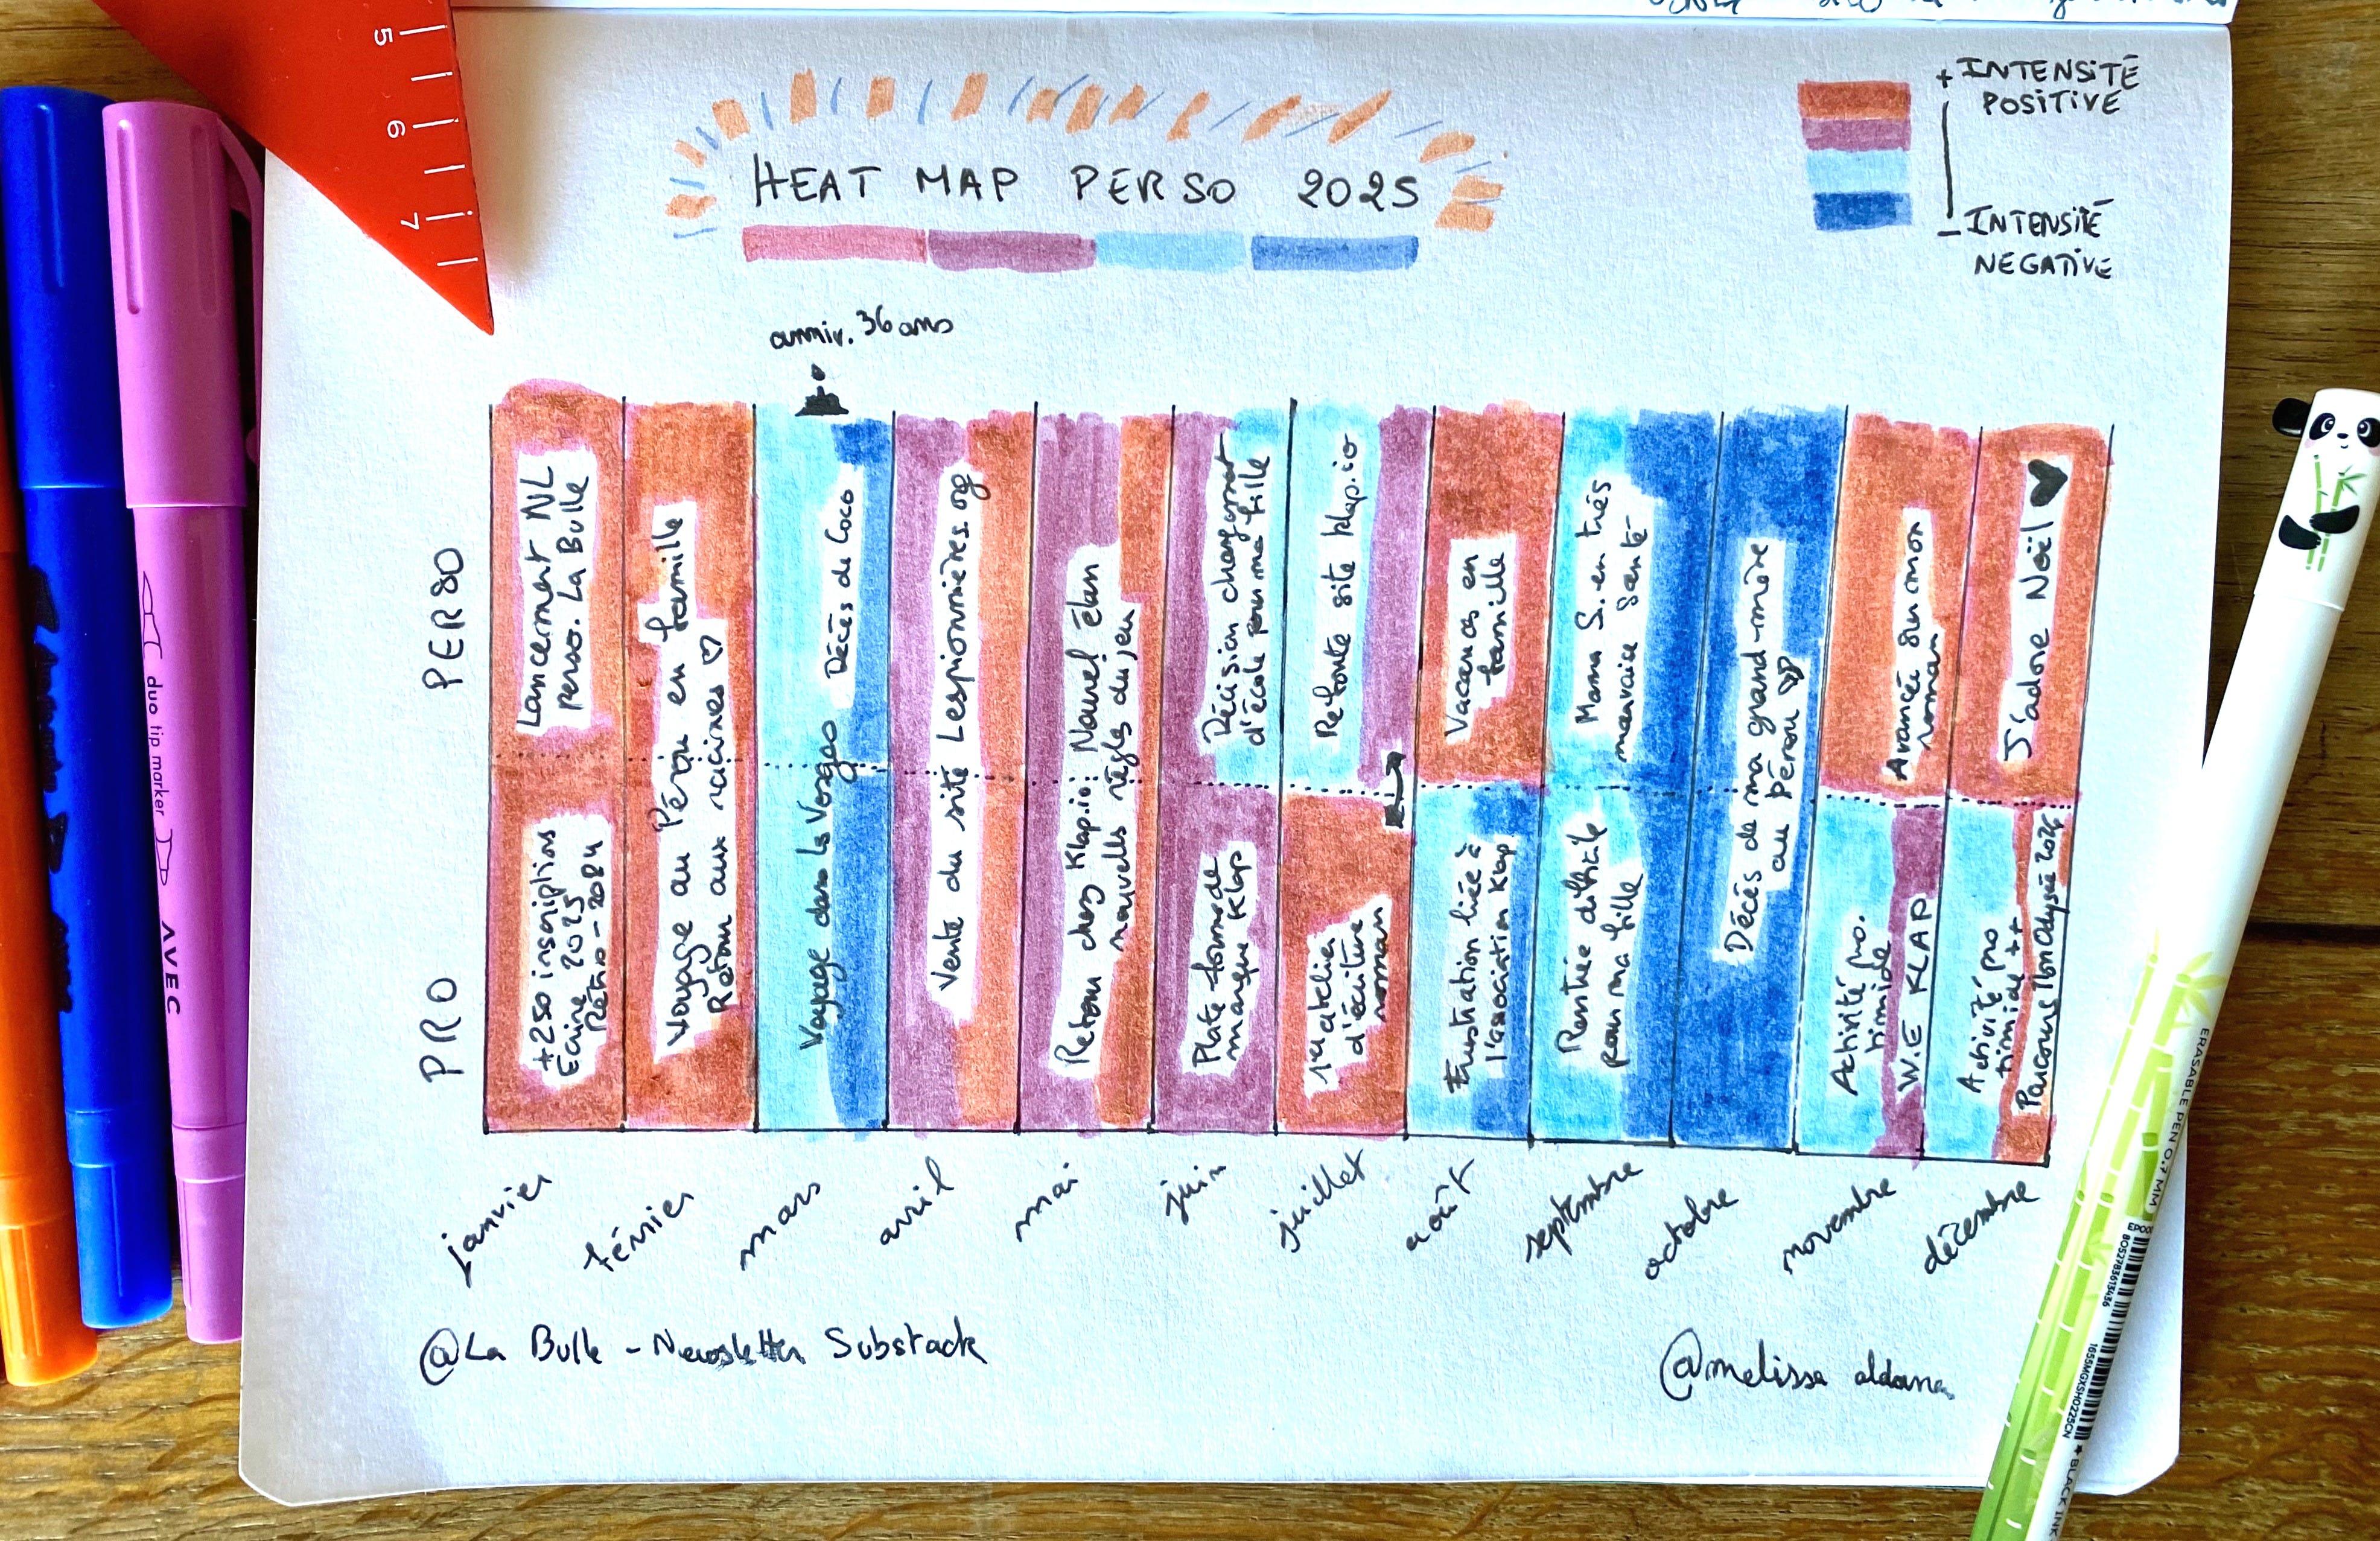 HEAT MAP PERSO 2025
+ INTENSITÉ
POSITIVE
- INTENSITÉ
NEGATIVE
anniv. 36 ans
PERSO
PRO
Lancement NL
perso. La Bulle
+250 inscriptions
Écrire 2025
Rétro-2024
Voyage au Pérou en famille
Retour aux racines ♡
Décès de Coco
Voyage dans les Vosges
Vente du site Lespionnières.org
Retour chez Klap.io: Nouvel élan
nouvelles règles du jeu
Décision changement
d'école pour ma fille
Plateforme de
marque Klap
Refonte site klap.io
1er atelier
d'écriture
roman
Vacances en
famille
Frustration liée à
l'association Klap
Mama S. en très
mauvaise santé
Rentrée difficile
pour ma fille
Décès de ma grand-mère
au Pérou ♡
Avancée sur mon
roman
Activité pro.
timide
W.E KLAP
J'adore Noël ♥
Activité pro
timide ++
Parcours Mon Odyssée 2026
janvier
février
mars
avril
mai
juin
juillet
août
septembre
octobre
novembre
décembre
@La Bulle - Newsletter Substack
@melissa aldana
5
6
7
duo tip marker
AVEC
ERASABLE PEN 0.7 MM
8052783613436
1655MGXSH0225CN
BLACK INK